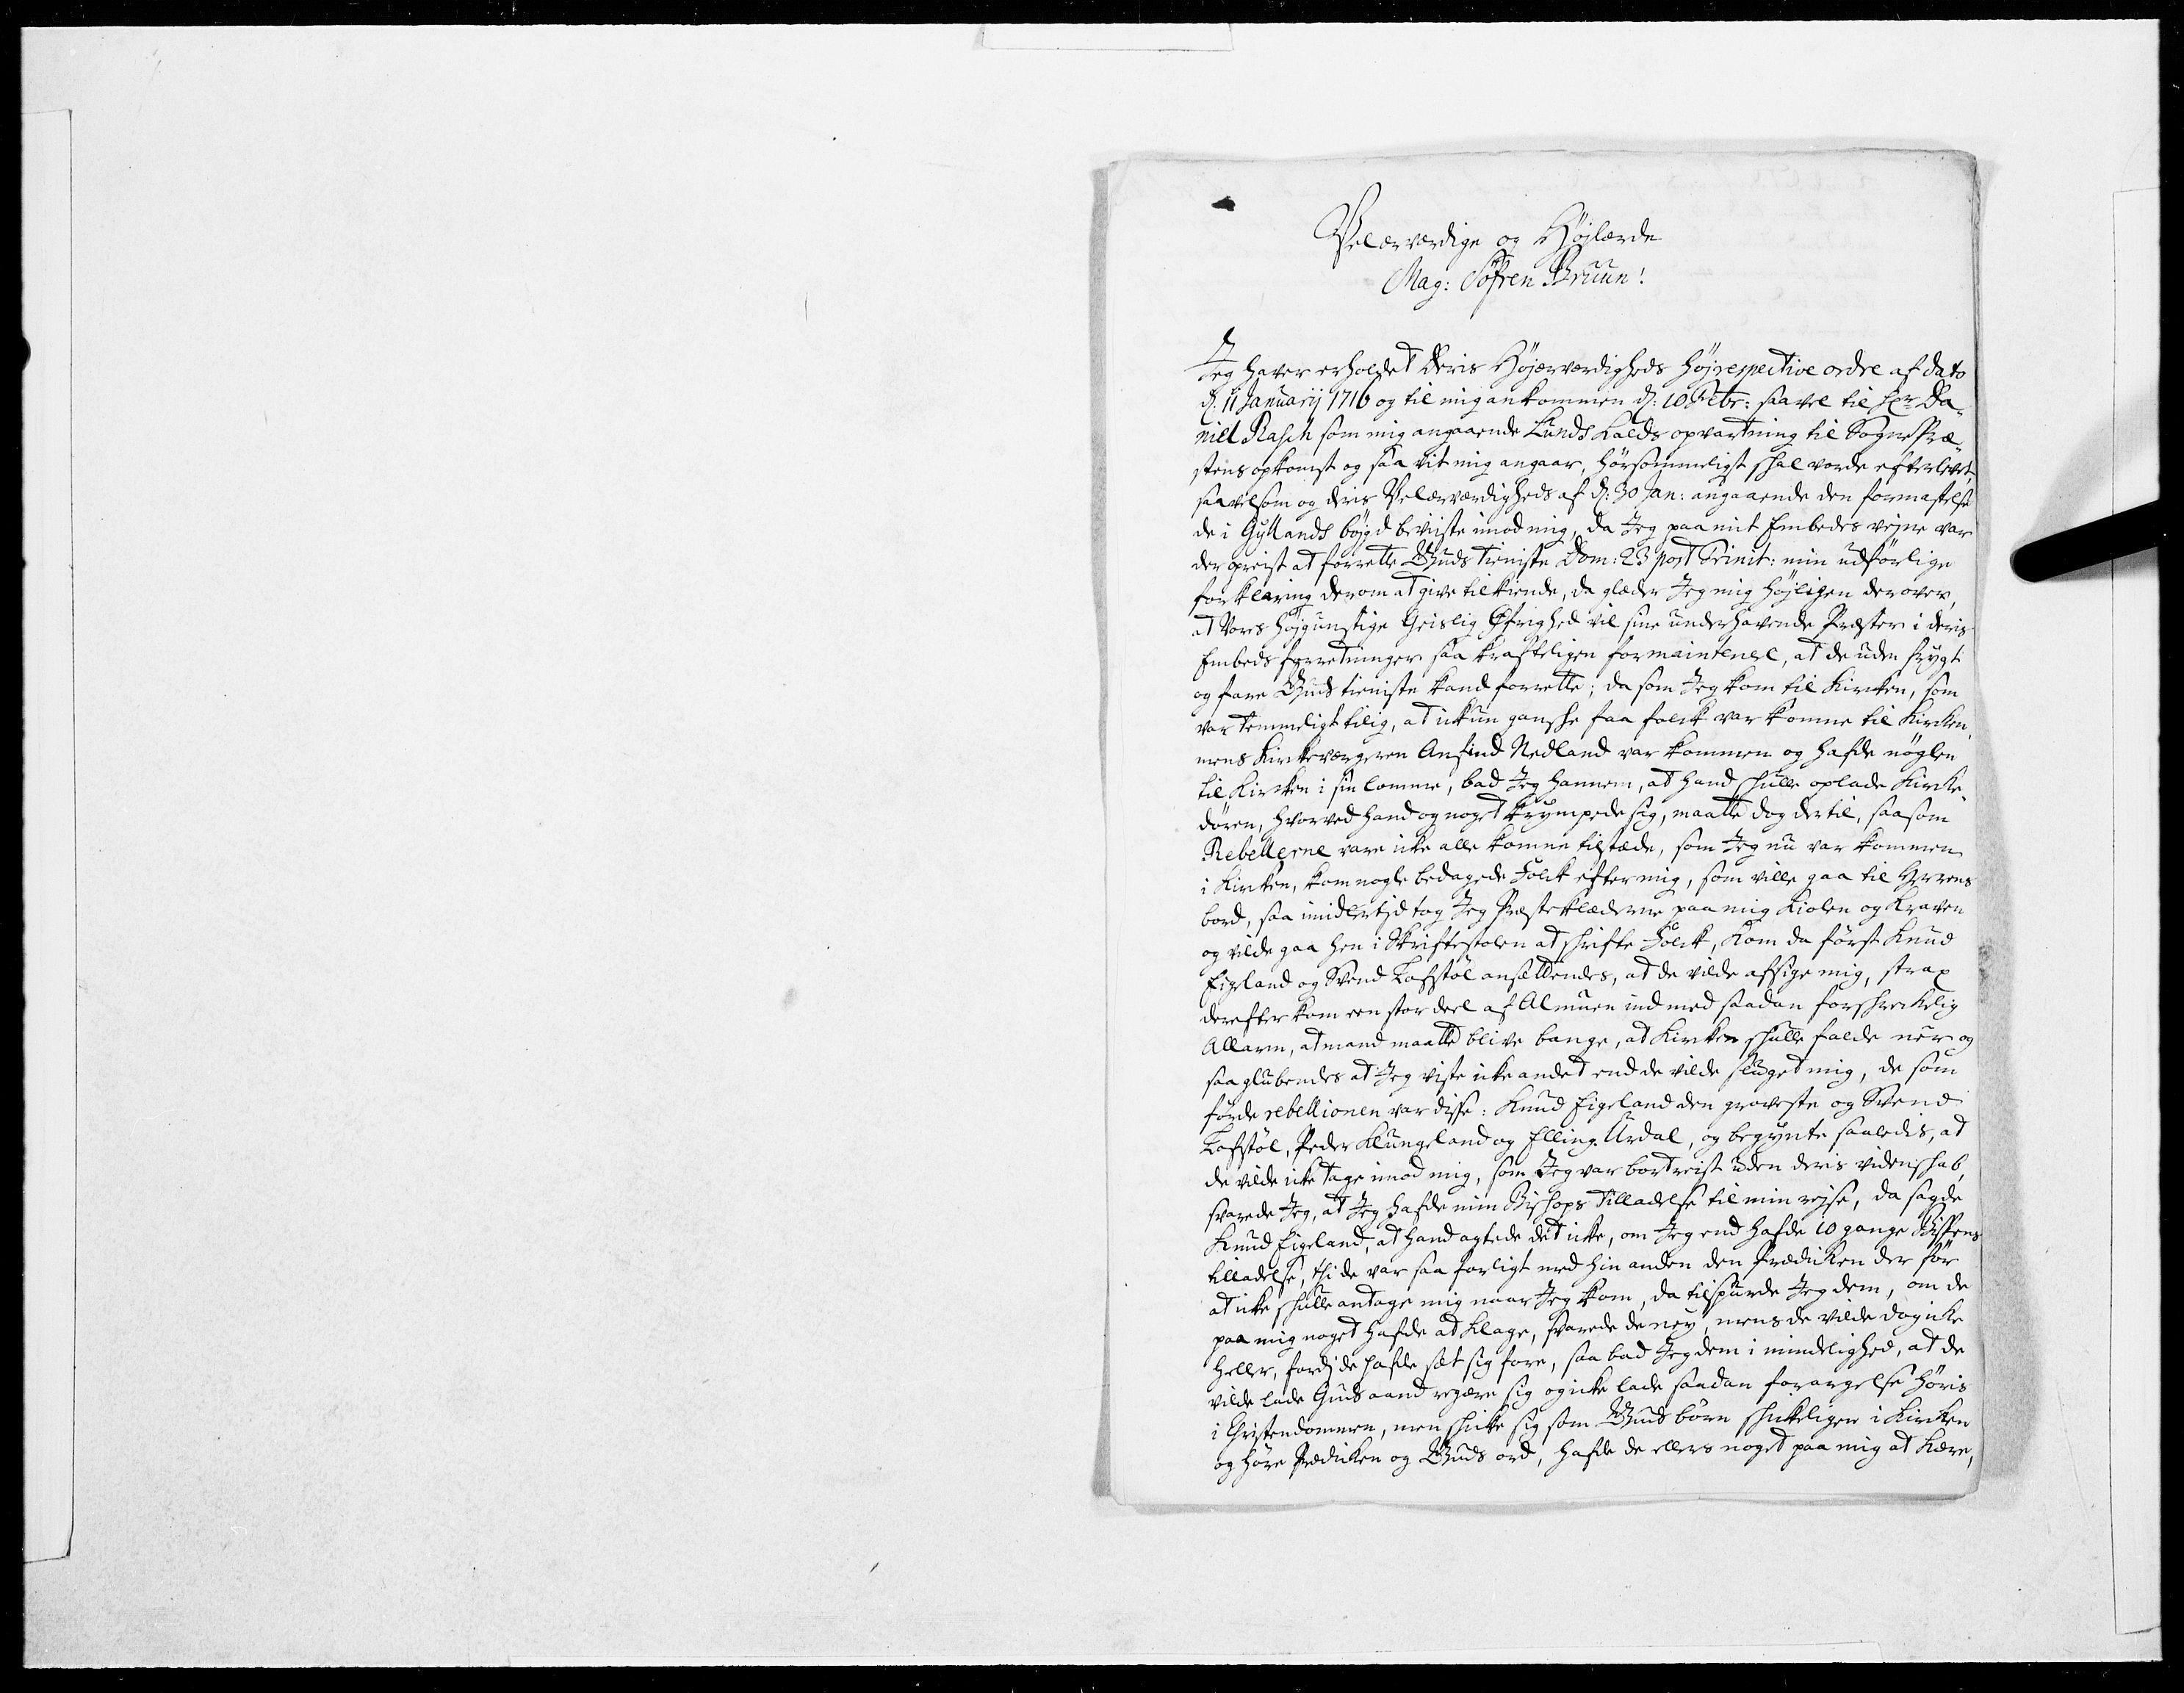 Velærværdige og Højlærde
Mag: Søfren Bruun!
Jeg haver erholdet Deris Højærværdigheds højrespective ordre af dato
d: 11 Januarij 1716 og til mig ankommen d: 10 Febr: saavel til Hr Da-
niel Rasch som mig angaaende Lunds Kalds opvartning til Sogne Præ-
stens opkomst og saa vit mig angaar, hørsommeligst skal vorde efterlevet,
saavelsom og deris Velærværdigheds af d: 30 Jan: angaaende den formastelse
de i Gyllands bøjgd beviiste imod mig, da Jeg paa mit Embedes vejne var
der opreist at forrette Guds tieniste Dom: 23 post Trinit: min udførlige
forklaring derom at give tilkiende, da glæder Jeg mig højligen derover,
at Vores højgunstige Geislig Øfrighed vil sine underhavende Præster i deris
Embeds forretninger saa kraftteligen formaintenere, at de uden frygt
og fare Guds tieniste kand forrette; da som Jeg kom til Kircken, som
var temmeligt tilig, at ickun ganske faa folck var komne til Kircken,
mens Kirkeværgeren Anfind Nedland var kommen og hafde nøglen
til Kircken i sin lomme, bad Jeg hannem, at hand skulle oplade Kircke-
døren, hvorved hand og noget krympede sig, maatte dog dertil, saasom
Rebellerne vare icke alle komne tilstæde, som Jeg nu var kommen
i Kircken, kom nogle bedagede Folck efter mig, som ville gaa til Herrens
bord, saa imidlertid tog Jeg Præsteklæderne paa mig Kiolen og Kraven
og vilde gaa hen i Skriftestolen at skrifte Folck, kom da først Knud
Eigland og Svend Lofstøl ansettendes, at de vilde afsige mig, strax
derefter kom een stor deel af Almuen ind med saadan forskreckelig
Allarm, at mand maatte blive bange, at Kircken skulle falde ner og
saa glubendes at Jeg viste icke andet end de vilde sluget mig, de som
førde rebellionen var disse: Knud Eigeland den groveste og Svend
Lofstøl, Peder Klungeland og Elling Urdal, og begynte saaledis, at
de vilde icke tage imod mig, som Jeg var bortreist uden deris videnskab,
svarede Jeg, at Jeg hafde min Biskops Tilladelse til min rejse, da sagde
Knud Eigeland, at hand agtede det icke, om Jeg end hafde 10 gange Bispens
tilladelse, thi de var saa forligt med hin anden den Prædicken der før
at icke skulle antage mig naar Jeg kom, da tilspurde Jeg dem, om de
paa mig noget hafde at klage, svarede de nej, mens de vilde dog icke
heller, fordj de hafde sæt sig fore, saa bad Jeg dem i mindelighed, at de
vilde lade Guds aand regære sig og icke lade saadan forargelse høris
i Christendommen, men skicke sig som Guds børn skickeligen i Kircken
og høre Prædicken og Guds ord, hafde de ellers noget paa mig at kære,